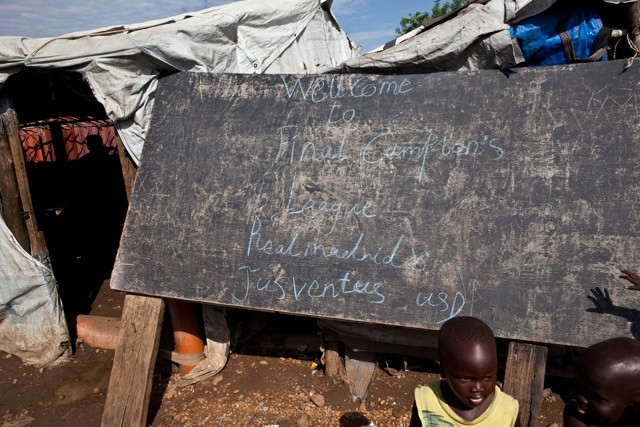 Welcome
to
Final Campion's
League
Realmadrid &
Jusventus USD